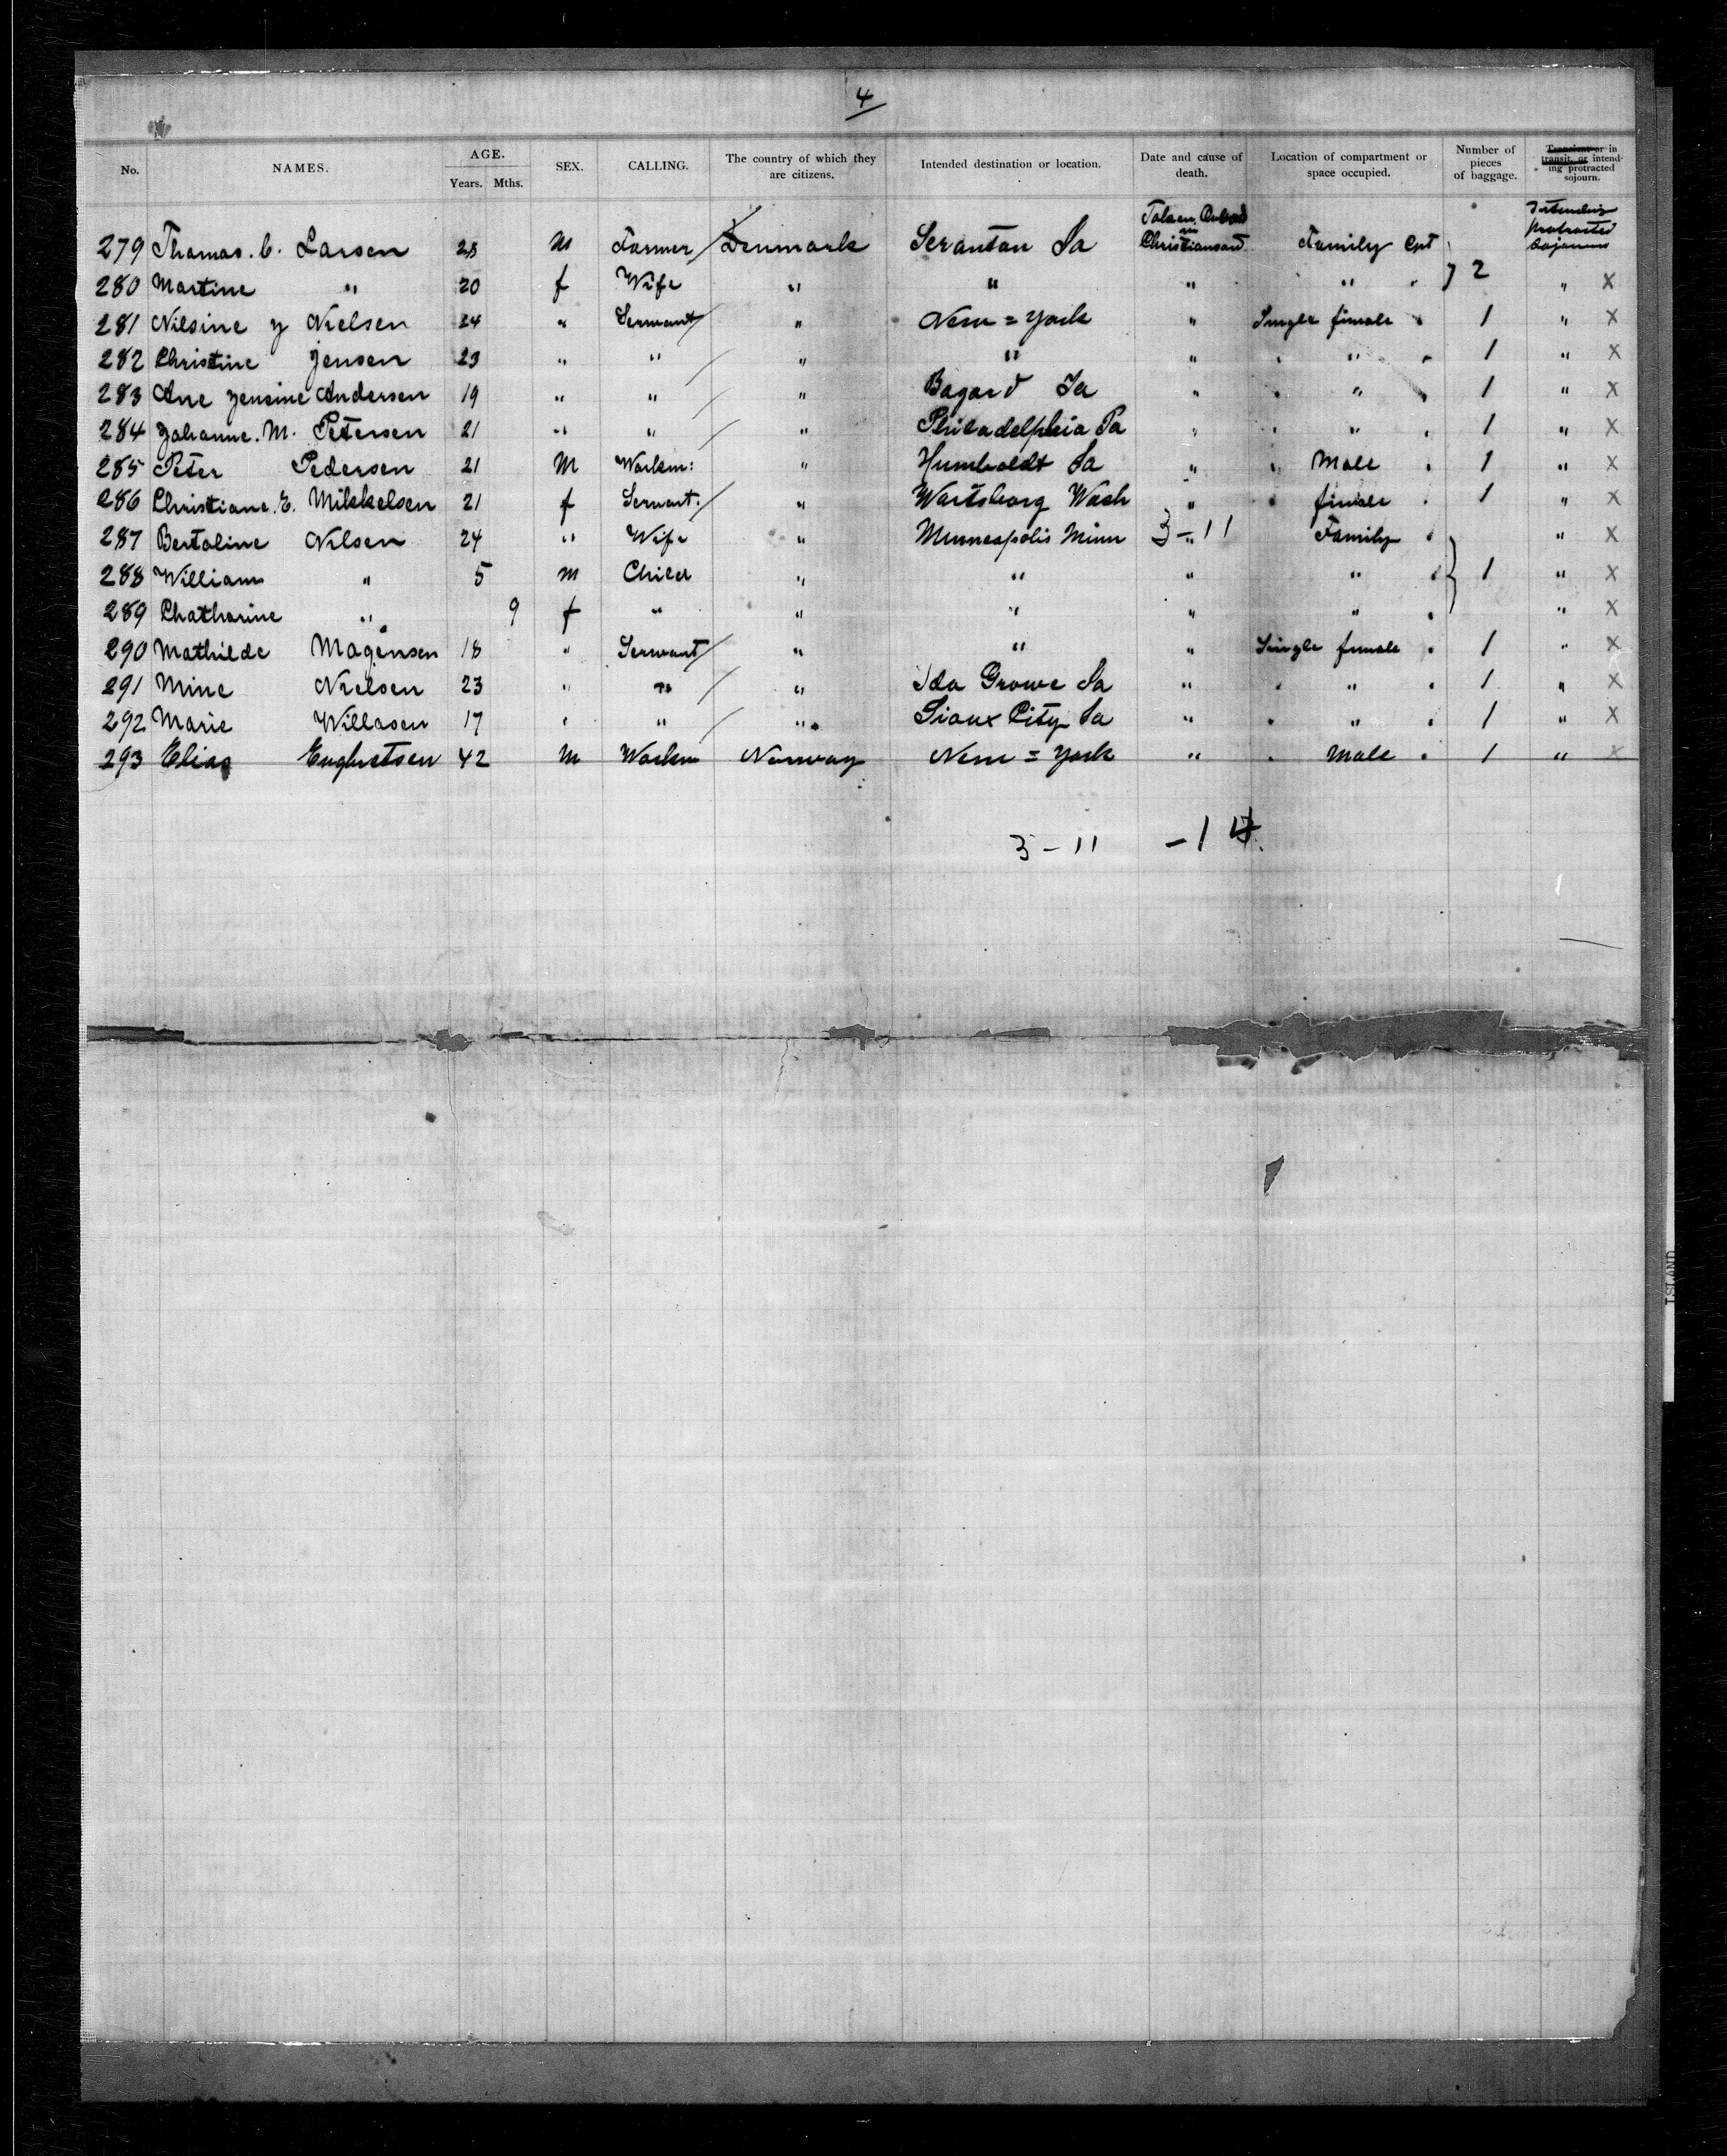 4
No. NAMES. AGE. Years. Mths. SEX. CALLING. The country of which they are citizens. Intended destination or location. Date and cause of death. Location of compartment or space occupied. Number of pieces of baggage. Transient or in transit, or intending protracted sojourn.
279 Thomas. C. Larsen 25 M Farmer / Denmark Scranton Ia Taken Onboard in Christiansand Family Cpt Intending protracted sojourn
280 Martine " 20 f Wife " " " " " } 2 " X
281 Nilsine J Nielsen 24 " Servant / " New = York " Single female " 1 " X
282 Christine Jensen 23 " " / " " " " " " 1 " X
283 Ane Jensine Andersen 19 " " / " Bagard Ia " " " " 1 " X
284 Johanne. M. Petersen 21 " " / " Philadelphia Pa " " " " 1 " X
285 Peter Pedersen 21 M Workm: " Humboldt Ia " " Male " 1 " X
286 Christiane. E. Mikkelsen 21 f Servant: / " Waitsborg Wash " " female " 1 " X
287 Bertoline Nilsen 24 " Wife " Minneapolis Minn 3 - 11 " Family " " X
288 William " 5 M Child " " " " " } 1 " X
289 Chatharine " 9 f " " " " " " " X
290 Mathilde Mogensen 18 " Servant / " " " Single female " 1 " X
291 Mine Nielsen 23 " " / " Ida Growe Ia " " " " 1 " X
292 Marie Willasen 17 " " / " Sioux City Ia " " " " 1 " X
293 Elias 42 M Workm Norway New = York " " Male " 1 " X
3 - 11 - 1
ISLAND